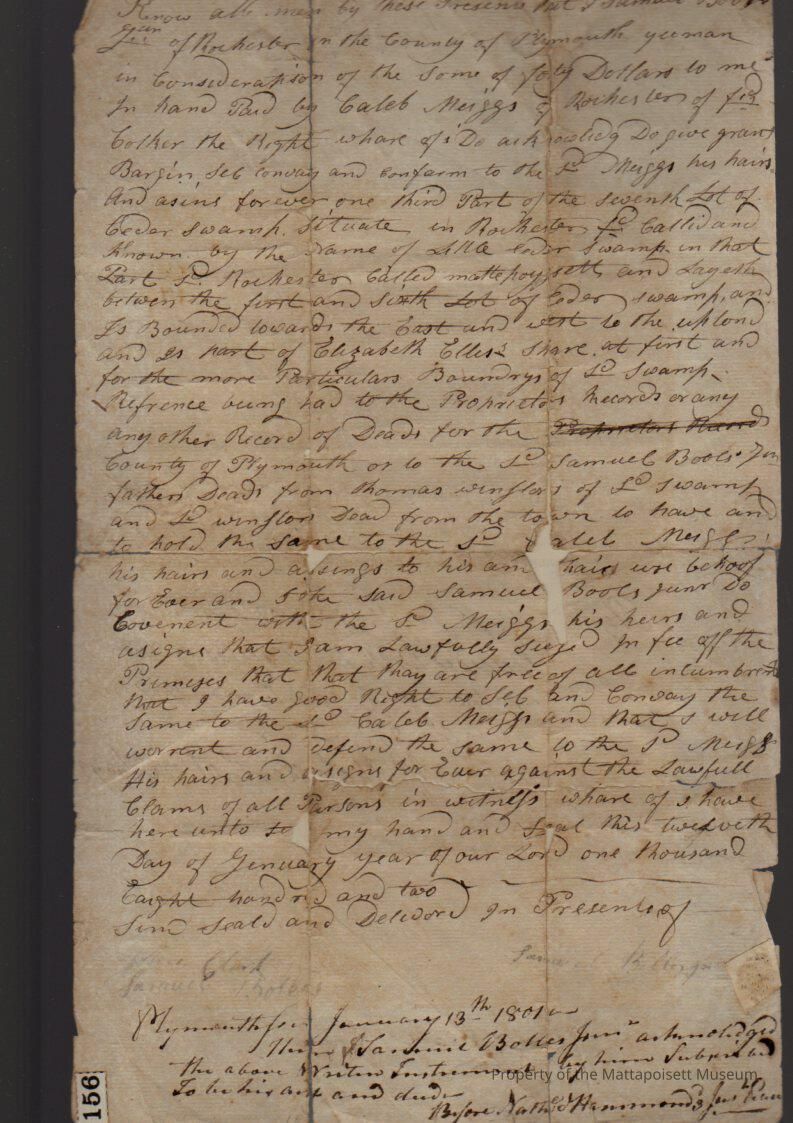 Know all men by these Presents that I Samuel
Jun of Rochester in the County of Plymouth yeoman
in Consideration of the Some of foty Dollars to me
In hand Paid by Caleb Meiggs of Rochester of
the Right whare of i Do acknowlidg Do give grant
Bargin Seb convay and confarm to the Sd Meiggs his hairs
And asins forever one third Part of the seventh Lot of
Ceder Swamp. Situate in Rochester Sd Callid and
Known by the name of Little Ceder Swamp in that
Part Sd Rochester Called mattepoysett and Layeth
betwen the first and sixth Lot of Ceder swamp, and
Is Bounded towards the East and west to the uplond
and is part of Elizabeth Ellis's Share. at first and
for the more Particulars Boundrys of Sd Swamp
Refrence being had to the Proprietors Records or any
any other Record of Deads for the Proprietors Records
County of Plymouth or to the Sd Samuel Bools Jun
fathers Deads from thomas winslors of Sd Swamp
and Sd winslors Dead from the town to have and
to hold the same to the Sd Caleb Meiggs
his hairs and asings to his and hairs use behoof
for Ever and I the said Samuel Bools Junr Do
Covenent with the Sd Meiggs his heirs and
asigns that I am Lawfully Seized In fee off the
Primeses that that thay are free of all incumbrents
that I have good Right to Seb and Convay the
Same to the Sd Caleb Meiggs and that I will
warrent and defend the same to the Sd Meiggs
His hairs and asigns for Ever against the Lawfull
Clams of all Parsons in witness whare of I have
here unto my hand and Seal this twelveth
Day of Genuary year of our Lord one thousand
Eaight hundrid and two
Sind Seald and Deliverd In Presents of
Clark Samuel
Samuel
Plymouth ss January 13th 1801
Then Samuel Bolles Junr acknolidged
the above Writen Instrement by him Subscribed
To be his act and deed
Before Nathl Hammond Just Peace
156
Property of the Mattapoisett Museum